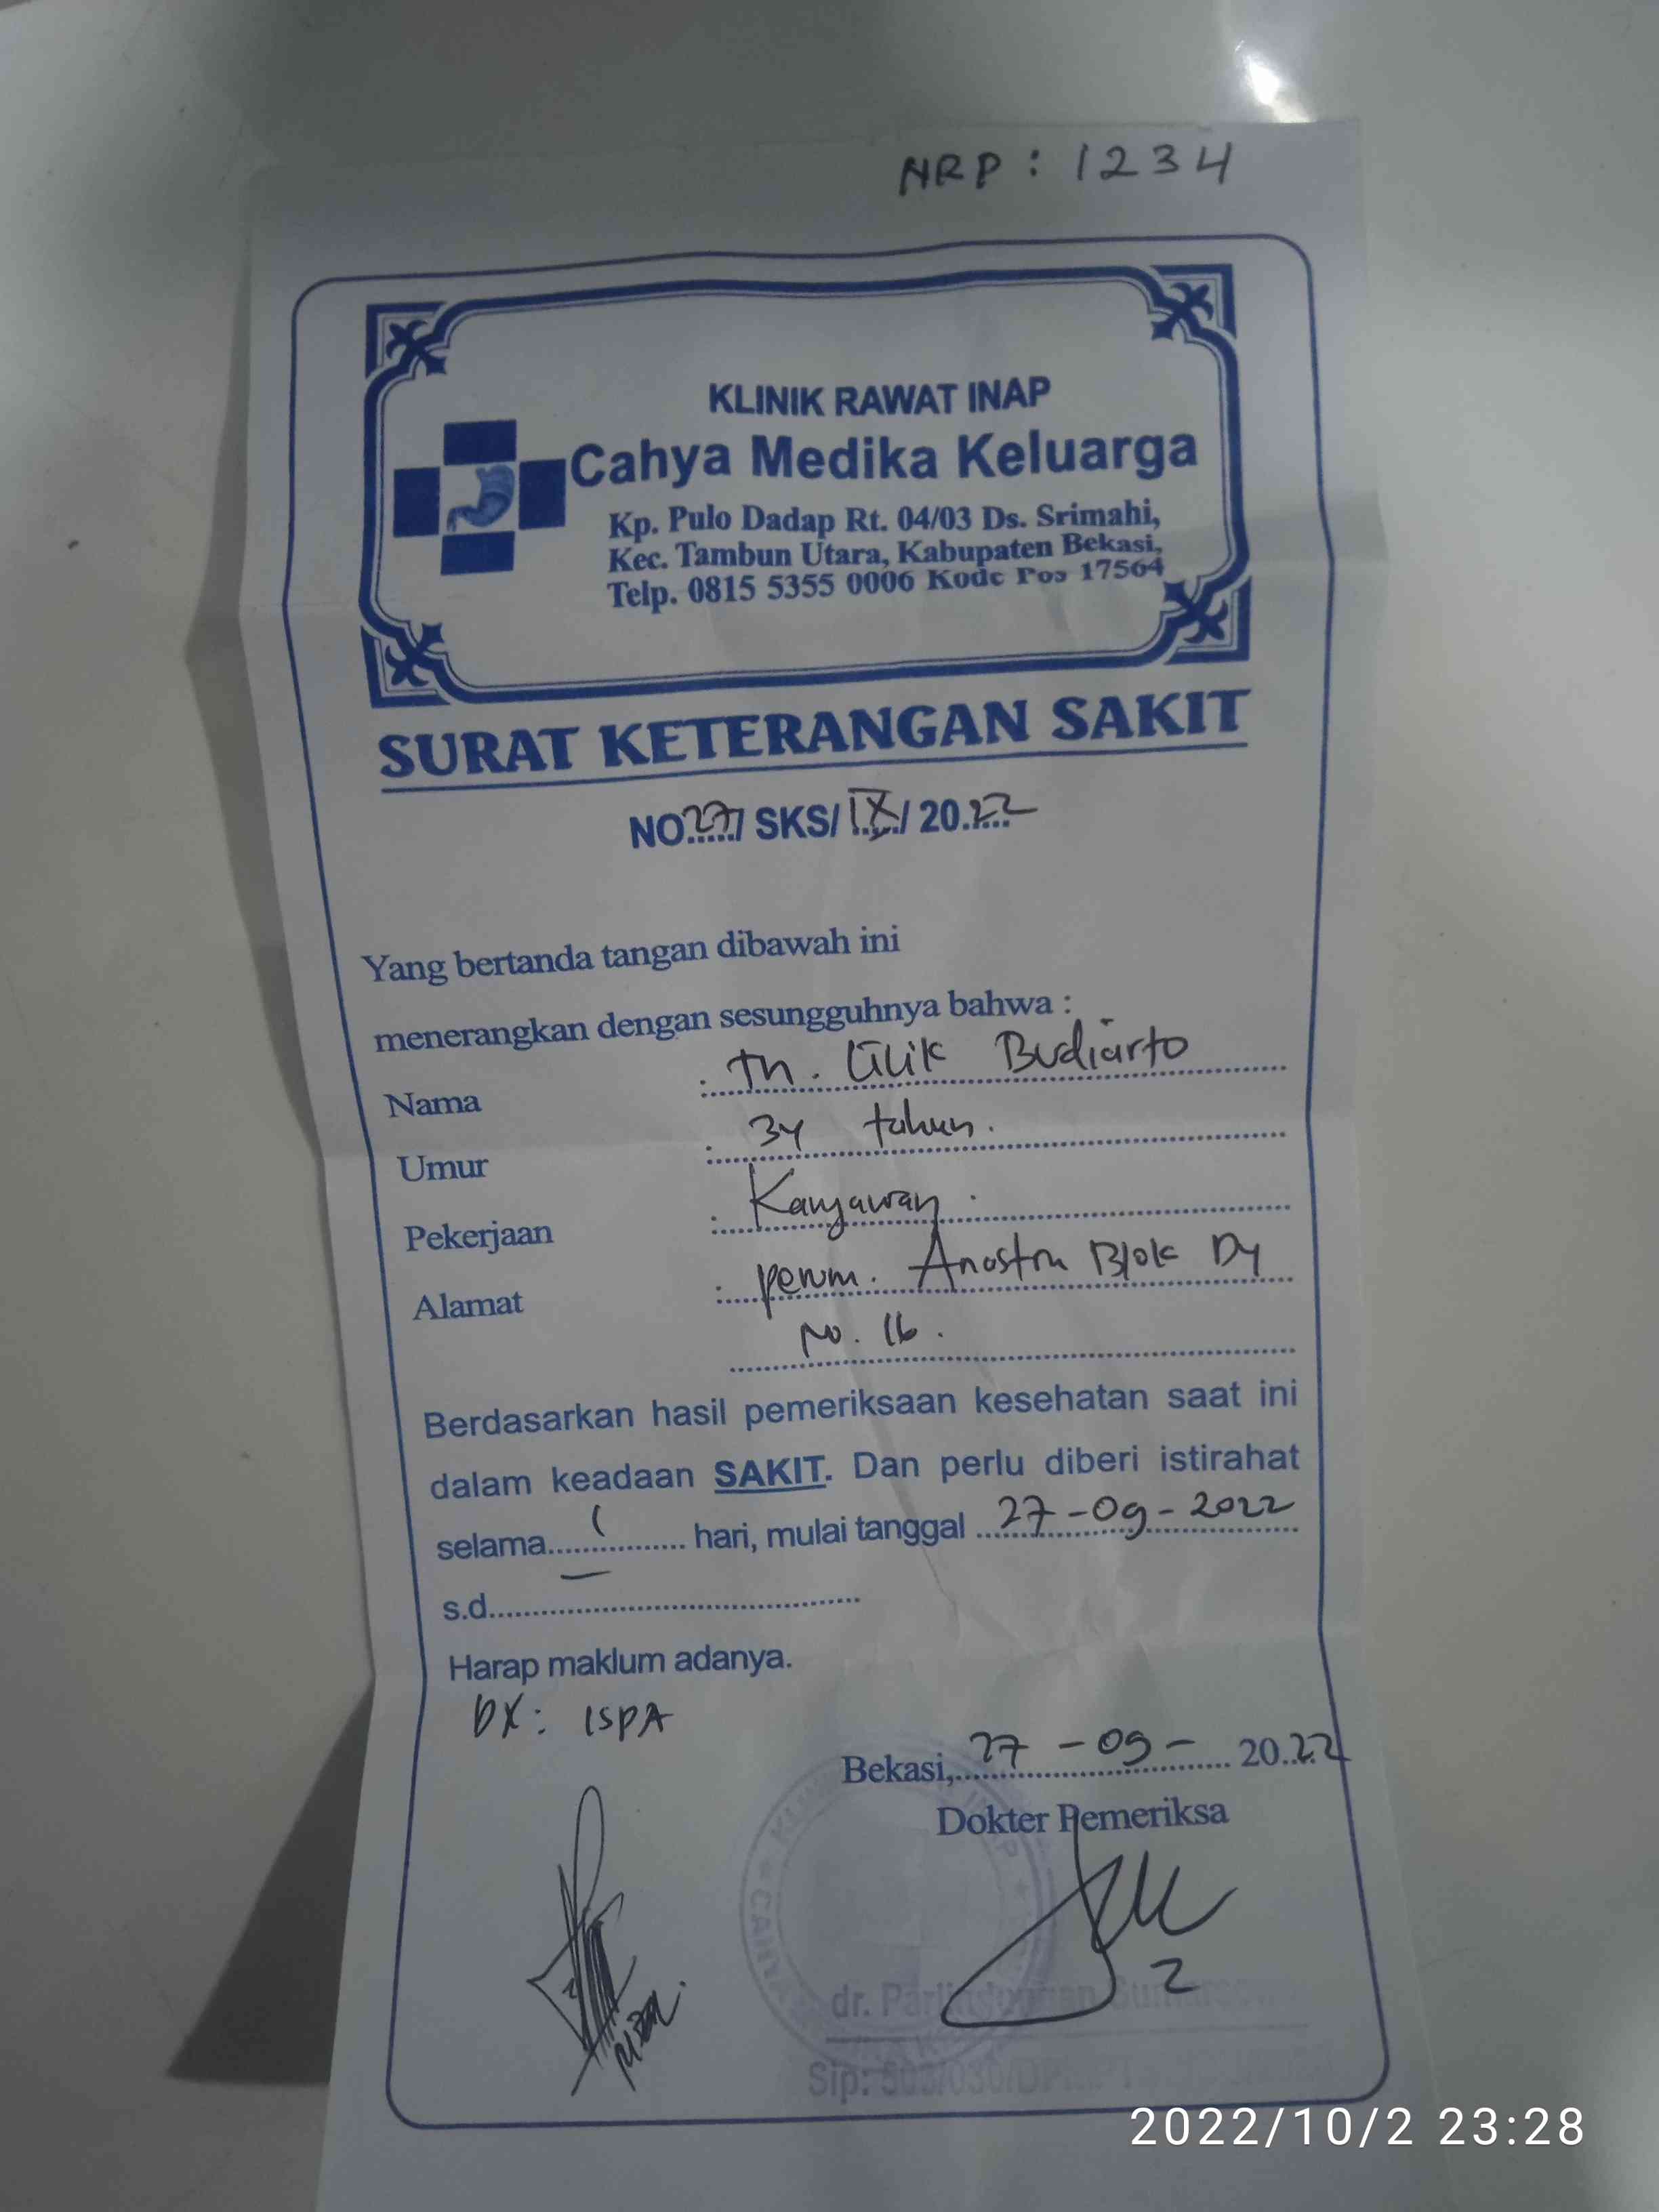 NRP : 1234
KLINIK RAWAT INAP
Cahya Medika Keluarga
Kp. Pulo Dadap Rt. 04/03 Ds. Srimahi,
Kec. Tambun Utara, Kabupaten Bekasi,
Telp. 0815 5355 0006 Kode Pos 17564
SURAT KETERANGAN SAKIT
NO.27/ SKS/ IX / 20.22
Yang bertanda tangan dibawah ini
menerangkan dengan sesungguhnya bahwa :
Nama : Tn. Lilik Budiarto
Umur : 34 tahun.
Pekerjaan : Karyawan.
Alamat : perum. Blok D4
No. 16.
Berdasarkan hasil pemeriksaan kesehatan saat ini
dalam keadaan SAKIT. Dan perlu diberi istirahat
selama 1 hari, mulai tanggal 27-09-2022
s.d. -
Harap maklum adanya.
DX: ISPA
Bekasi, 27 - 09 - 20.22
Dokter Pemeriksa
dr.
Sip: 503/030/
2022/10/2 23:28